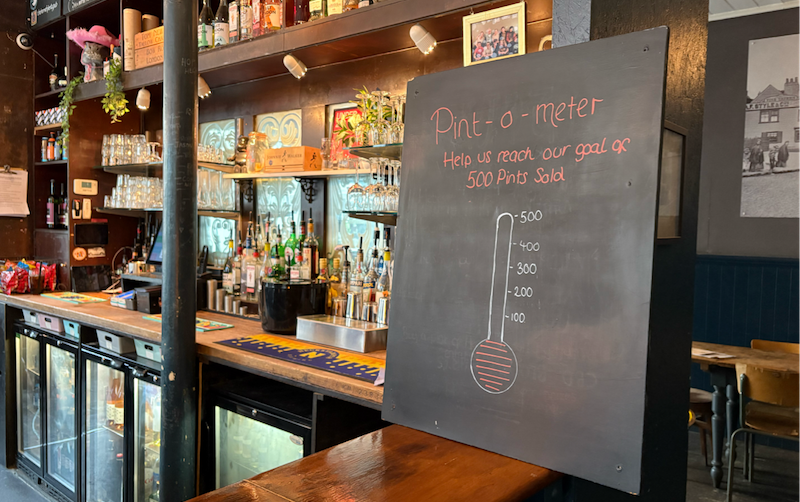 Pint-o-meter
Help us reach our goal of
500 Pints Sold
500
400
300
200
100